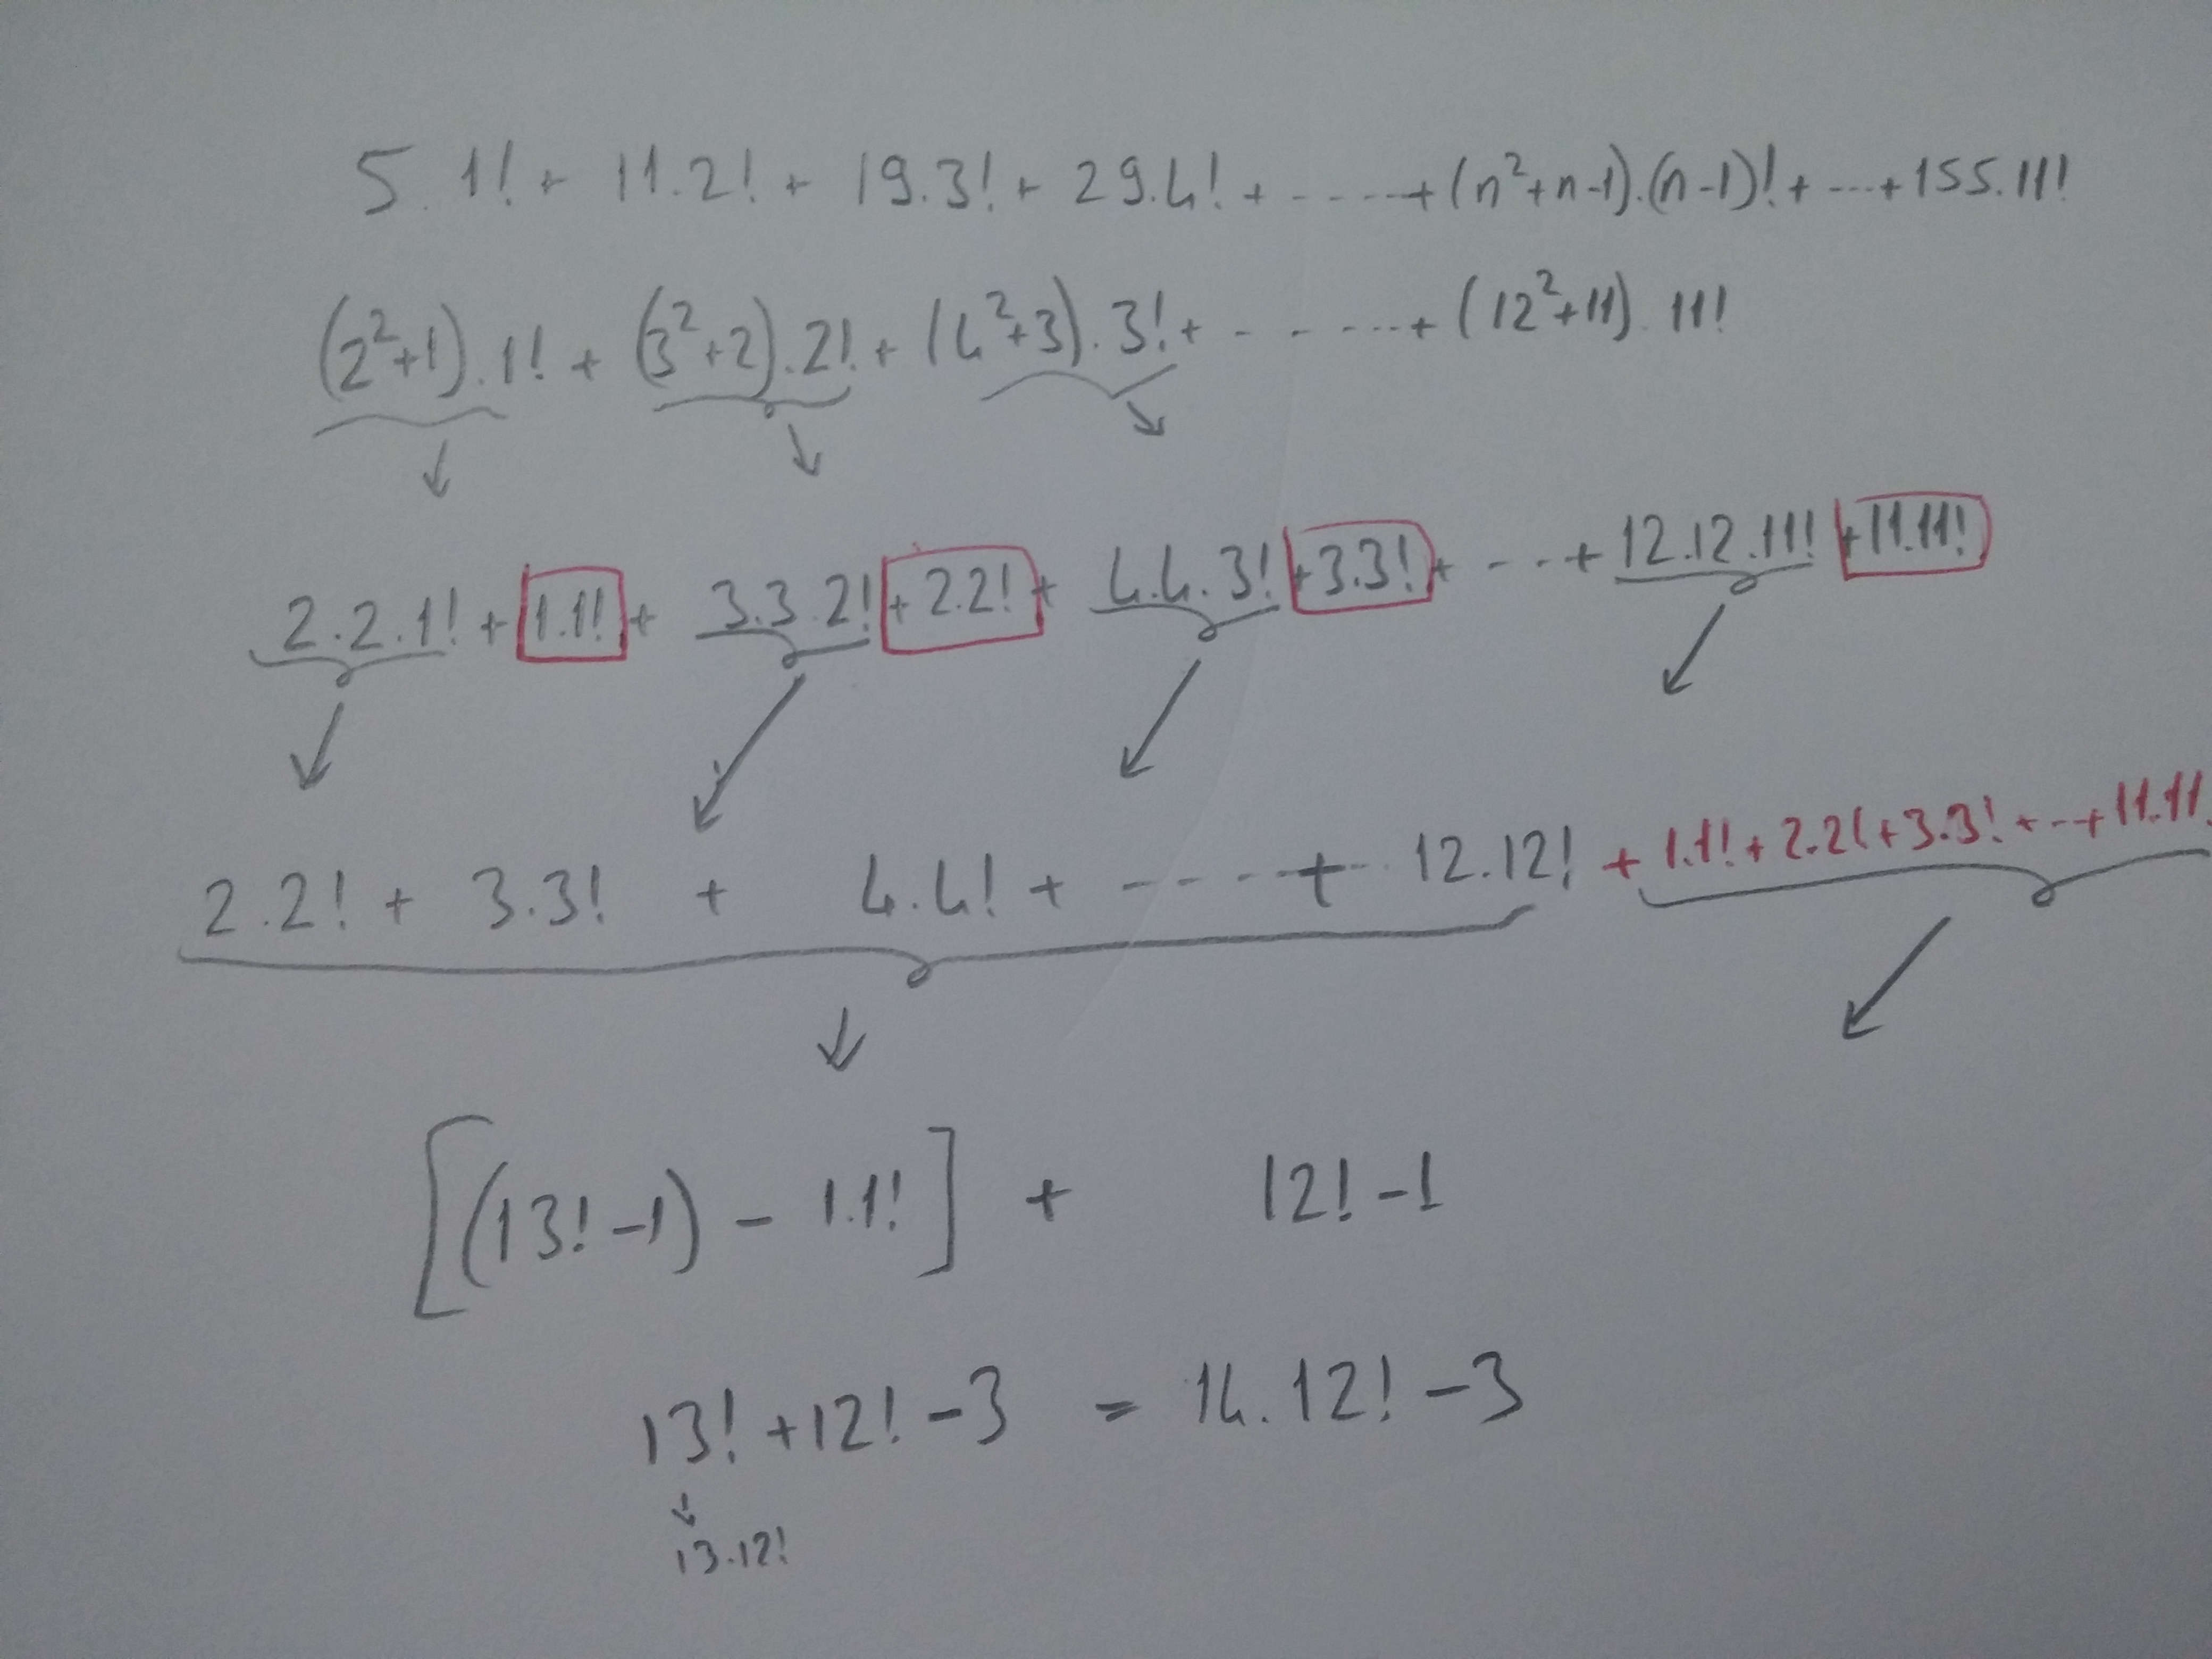 5.1! + 11.2! + 19.3! + 29.4! + ..... + (n²+n-1).(n-1)! + ... + 155.11!
(2²+1).1! + (3²+2).2! + (4²+3).3! + ...... + (12²+11).11!
2.2.1! + 1.1! + 3.3.2! + 2.2! + 4.4.3! + 3.3! + ... + 12.12.11! + 11.11!
2.2! + 3.3! + 4.4! + ..... + 12.12! + 1.1! + 2.2! + 3.3! + ... + 11.11
[(13!-1) - 1.1!] + 12!-1
13! + 12! - 3 = 14.12! - 3
13.12!